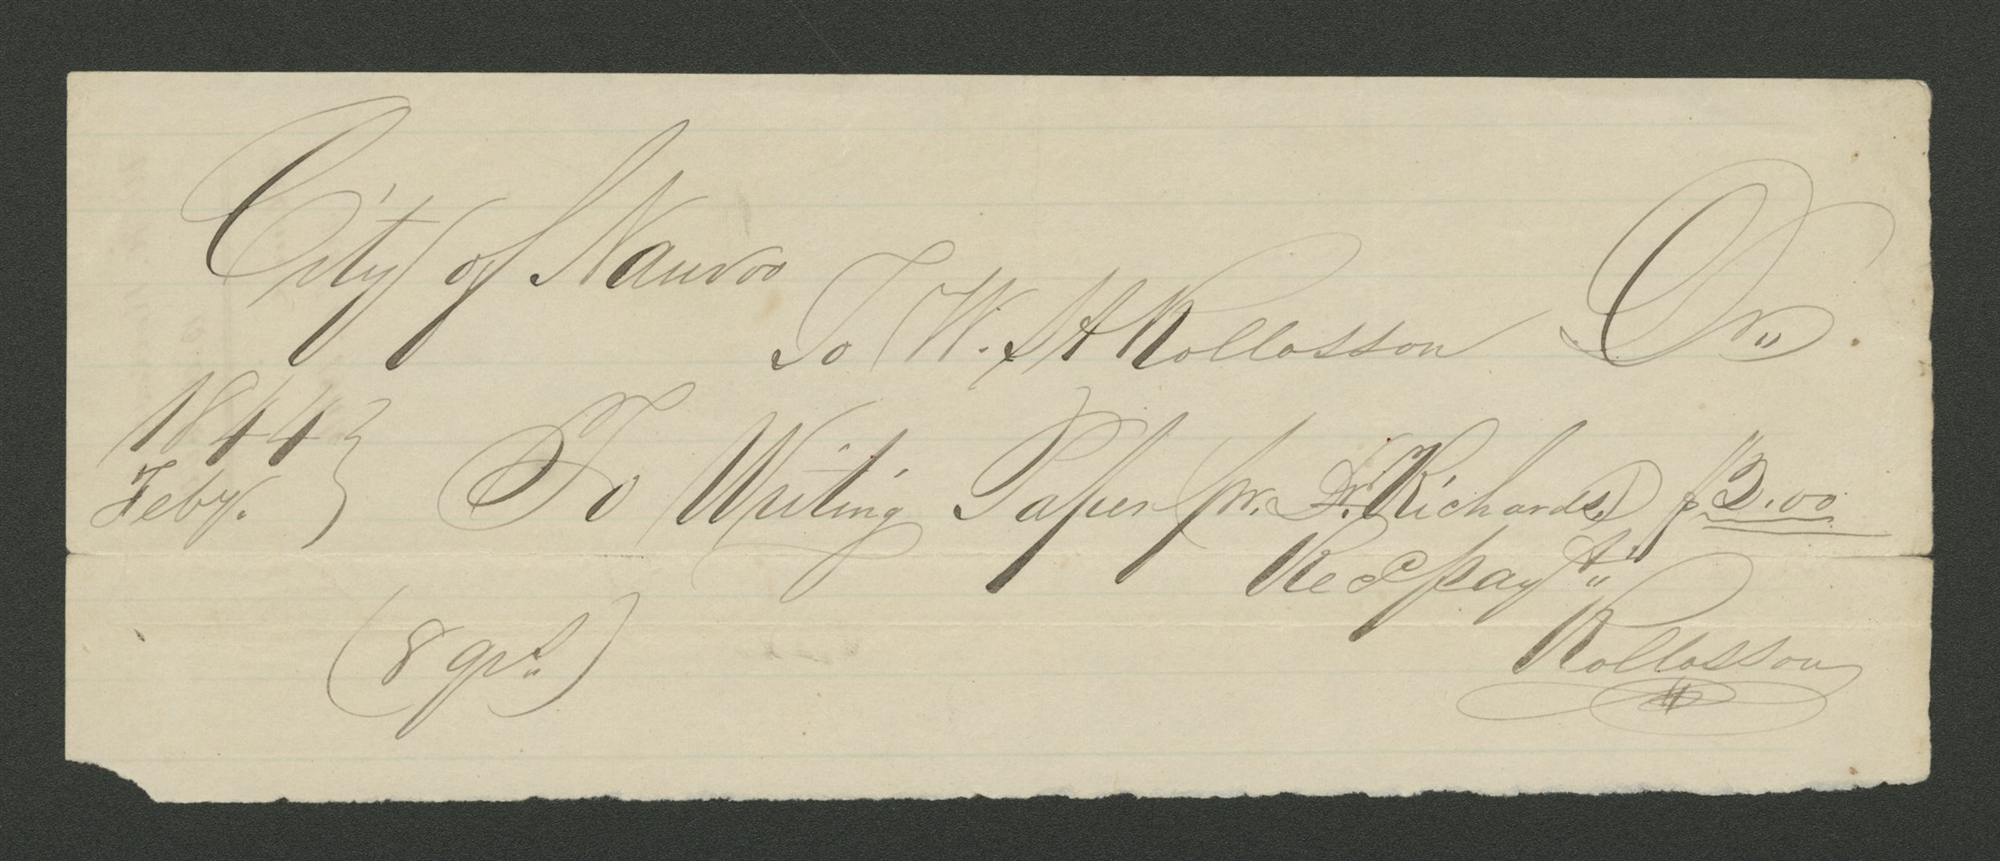 City of Nauvoo
To W. H Rollosson Dr.
1844 Feby. } To Writing Paper (pr. Dr. Richards) $3.00
Recd payt
Rollosson
(8 qrs)